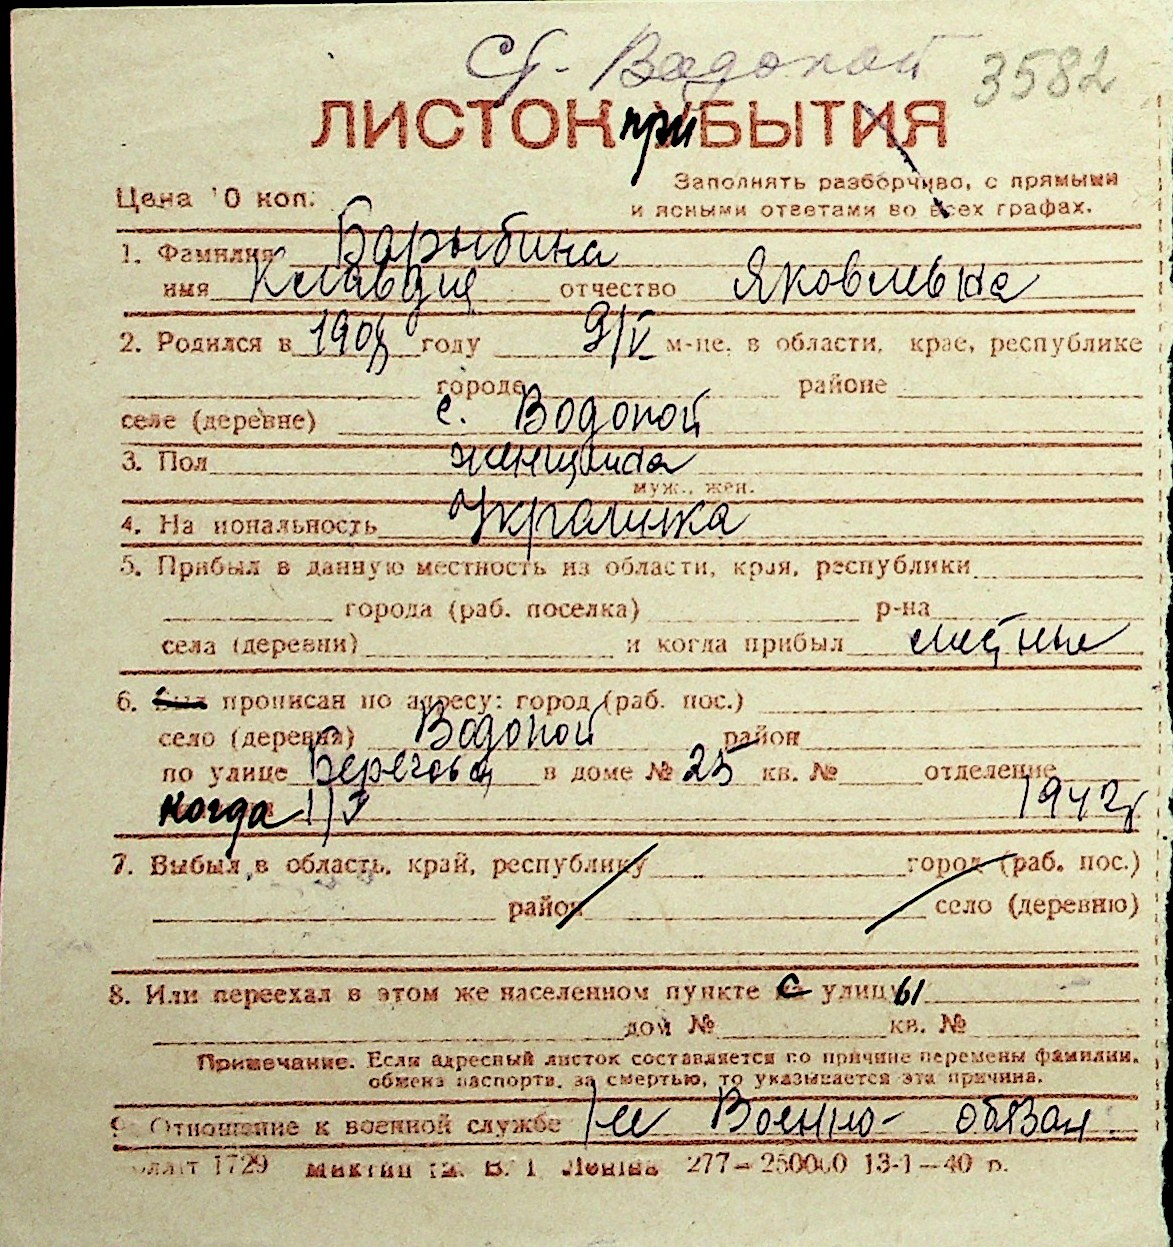 Ст. Водопой 3582
ЛИСТОК прибытия
Цена 10 коп.
Заполнять разборчиво, с прямыми
и ясными ответами во всех графах.
1. Фамилия Барыбина
имя Клавдия отчество Яковлевна
2. Родился в 1908 году 9/V м-це, в области, крае, республике
городе районе
селе (деревне) с. Водопой
3. Пол женщина
муж., жен.
4. Национальность Украинка
5. Прибыл в данную местность из области, края, республики
города (раб. поселка) р-на
села (деревни) и когда прибыл местные
6. Был прописан по адресу: город (раб. пос.)
село (деревня) Водопой район
по улице Береговая в доме № 25 кв. № отделение
когда 1942
7. Выбыл в область, край, республику город (раб. пос.)
район село (деревню)
8. Или переехал в этом же населенном пункте с улицы
дом № кв. №
Примечание. Если адресный листок составляется по причине перемены фамилии,
обмена паспорта, за смертью, то указывается эта причина.
9. Отношение к военной службе не Военно-обязан.
1729 277—250000 13-1—40 р.